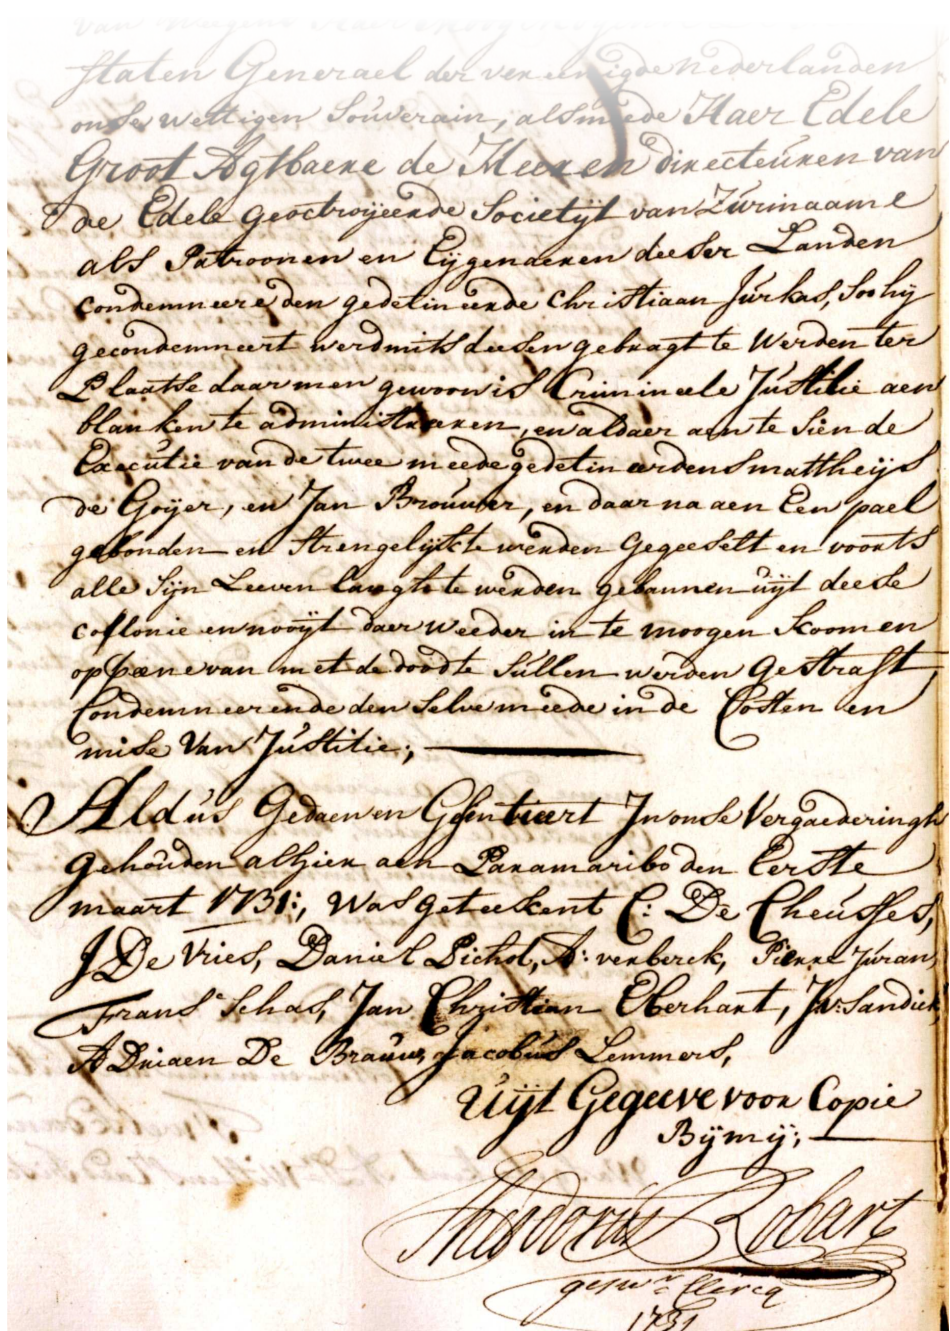 van weegens Haer Hoog Mogende
Staten Generael der vereenigde nederlanden
onse wettigen Souverain, alsmeede Haer Edele
Groot Agtbaere de Heeren directeuren van
de Edele geoctroijeerde Societijt van Zurinaame
als Patroonen en Eijgenaeren deeser Landen
condemneere den gedetineerde Christiaan Jurkas, soo hij
gecondemneert werd mits deesen gebragt te werden ter
Plaatse daar men gewoon is Crimineele Justitie aen
blanken te administreeren, en aldaer aen te sien de
Executie van de twee meede gedetineerdens mattheijs
de Goijer, en Jan Brouwer, en daar na aen Een pael
gebonden en strengelijk te werden gegeeselt en voorts
alle sijn Leeven langh te werden gebannen uijt deese
collonie en nooijt daer weeder in te moogen koomen
op pæne van met de doodt te sullen werden gestraft,
Condemneerende den selve meede in de Costen en
mise van Justitie;
Aldus Gedaen en Gesentieert In onse Vergaederingh
gehouden alhier aen Paramaribo den Eerste
maart 1731:, was geteekent C: De Cheusses,
J De Vries, Daniel Pichot, A: verberck, Pierre Juran,
Frans Schas, Jan Christiaan Eberhart, Jv: Sandick,
Adriaen De Brauw, Jacobus Lemmers,
Uijt Gegeeve voor Copie
Bij mij,
Theodorus Robart
gesw.r Clercq
1731